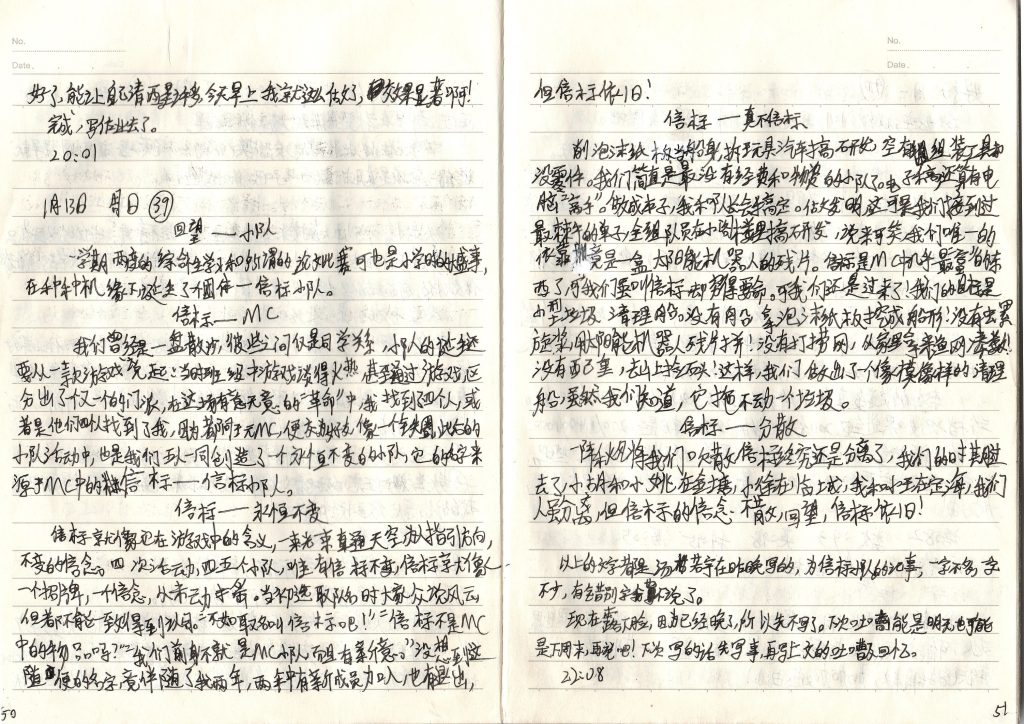 No.
Date.
好了,能让自己清醒些,今天早上我就这么做了,效果显著啊!
完成,写作业去了。
20:01
1月13日 周日 ㊴
回望——小队
一学期两度的综合性学习和所谓的论文比赛可也是小学时的盛事,
在种种机缘下诞生了个团体——信标小队。
信标——MC
我们曾经是一盘散沙,彼此之间仅是同学关系,小队的诞生还
要从一款游戏说起:当时班级中游戏谈得火热,甚至通过游戏区
分出了一个个的门派,在这场有意无意的"革命"中,我找到四个人,或
者是他们四人找到了我,因为都附于MC,便亲如队伍,像一个氛围,此后的
小队活动中,也是我们五人一同创造了一个永恒不变的小队,它的名字来
源于MC中的信标——信标小队。
信标——永恒不变
信标就像它在游戏中的含义,一束光束直通天空为人指引方向,
不变的信念。四次活动,四五个小队,唯有信标不变,信标就像
一个招牌,一个信念,从来动
当初选取队名时大家众说风云
但都不能一致得到认同。"不如取名叫信标吧!""信标不是MC
中的物品吗?""我们前身不就是MC小队而且有新意。"没想到这
随便的名字竟伴随了我两年,两年中有新成员加入,也有退出,
50
No.
Date.
但信标依旧!
信标——真不信标
削泡沫纸板当船身,拆玩具汽车搞研究,空有组装工具却
没零件。我们简直是最没有经费和物资的小队了。电子稿还算有电
脑"高手"。做成本子,我和队长会搞定。但发明,这可是我们接到过
最棘手的单子,全组队员在小区楼里搞研发,说来可笑,我们唯一的
作靠竟是一盒太阳能机器人的残片。信标是MC中几乎最富的东
西了,可我们要叫信标却穷得要命。可我们还是过来了!我们的目标是
小型垃圾清理船。没有船身,拿泡沫纸板挖成船形!没有螺
旋桨,用太阳能机器人残片拼!没有打捞网,从家里拿来渔网凑数!
没有配重,去山上捡石头!这样,我们做出了一个像模像样的清理
船,虽然我们知道,它拖不动一个垃圾。
信标——分散
一阵秋风将我们吹散,信标终究还是分离了,我们的时其胜
去了,小胡和小姚在金塘,小徐在临城,我和小王在定海,我们
人虽分离,但信标的信念不散,回望,信标依旧!
以上的文字都是汤若宇在昨晚写的,为信标小队的记事,一字不多,一字
不少,有错别字我就不说了。
现在露了脸,因已经晚了,所以先不写了。下次吐槽可能是明天也可能
是下周末,再说吧!下次写的话先写事,再写上文的吐槽及回忆了。
22:08
51